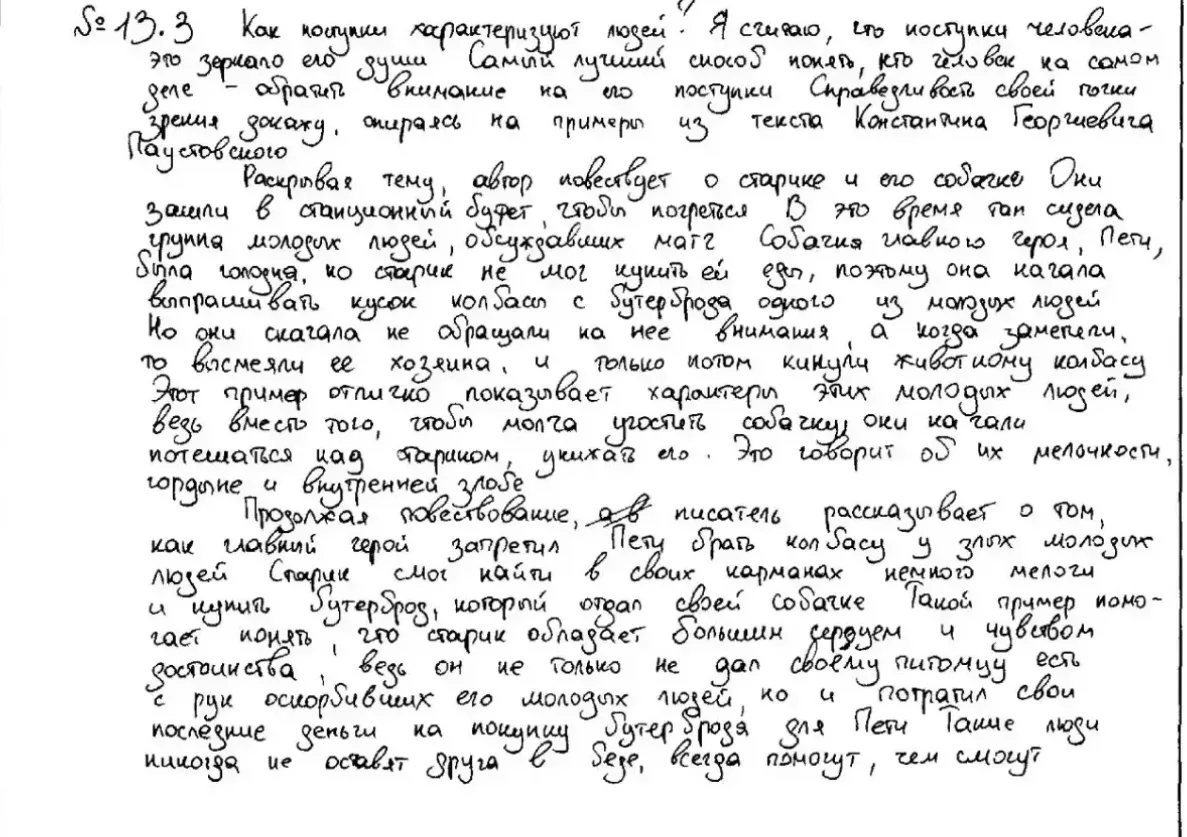 № 13.3 Как поступки характеризуют людей? Я считаю, что поступки человека -
это зеркало его души Самый лучший способ понять, кто человек на самом
деле - обратить внимание на его поступки Справедливость своей точки
зрения докажу, опираясь на примеры из текста Константина Георгиевича
Паустовского
Раскрывая тему, автор повествует о старике и его собачке Они
зашли в станционный буфет, чтобы погреться В это время там сидела
группа молодых людей, обсуждавших матч Собачка главного героя, Пети,
была голодна, но старик не мог купить ей еды, поэтому она начала
выпрашивать кусок колбасы с бутерброда одного из молодых людей
Но они сначала не обращали на нее внимания, а когда заметили,
то высмеяли ее хозяина, и только потом кинули животному колбасу
Этот пример отлично показывает характеры этих молодых людей,
ведь вместо того, чтобы молча угостить собачку, они начали
потешаться над стариком, унижать его. Это говорит об их мелочности,
гордыне и внутренней злобе
Продолжая повествование, писатель рассказывает о том,
как главный герой запретил Пети брать колбасу у злых молодых
людей Старик смог найти в своих карманах немного мелочи
и купить бутерброд, который отдал своей собачке Такой пример помо-
гает понять, что старик обладает большим сердцем и чувством
достоинства, ведь он не только не дал своему питомцу есть
с рук оскорбивших его молодых людей, но и потратил свои
последние деньги на покупку бутерброда для Пети Такие люди
никогда не оставят друга в беде, всегда помогут, чем смогут